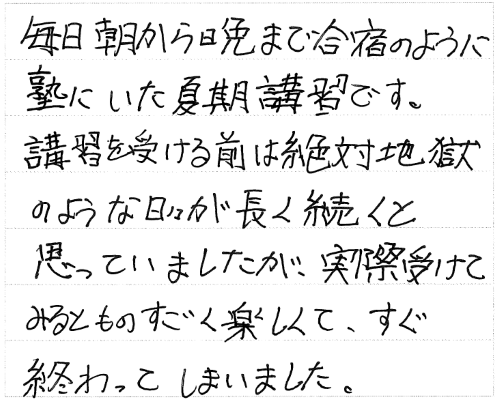 毎日朝から晩まで合宿のように
塾にいた夏期講習です。
講習を受ける前は絶対地獄
のような日々が長く続くと
思っていましたが、実際受けて
みるとものすごく楽しくて、すぐ
終わってしまいました。